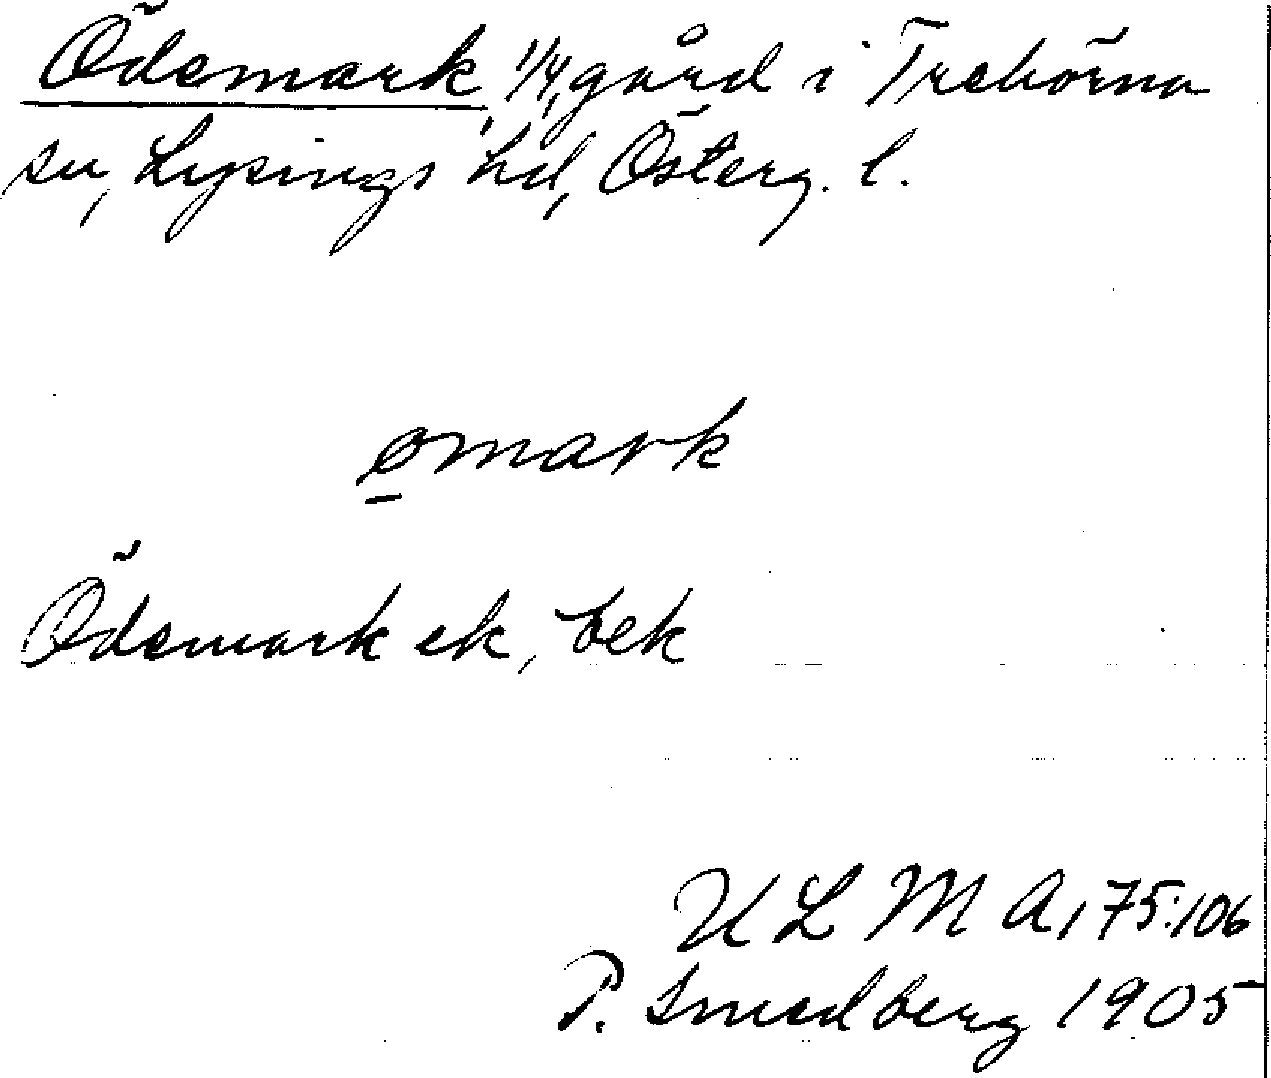 Ödsmark, 1/4, gård i Trehörna
sn, Lysings hd, Österg. l.
ømark
Ödsmark ek, bek
ULMA, 75:106
P. Smedberg 1905